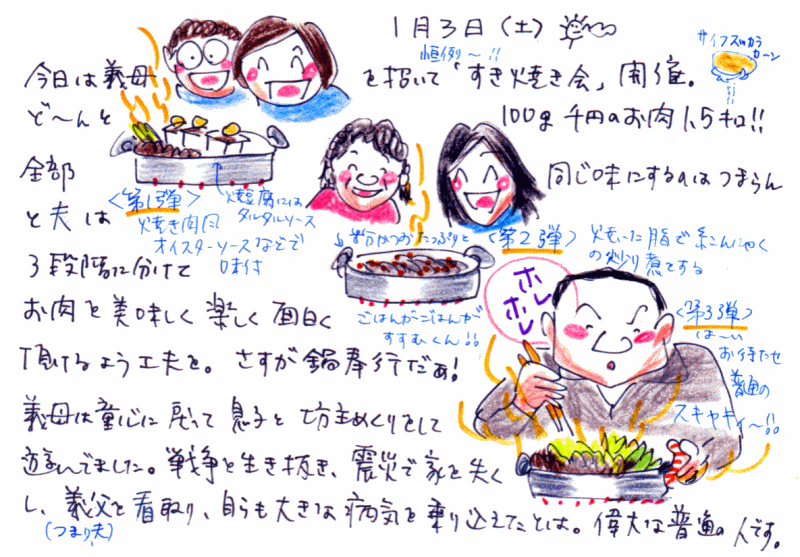 1月3日(土)
恒例〜!!
今日は義母を招いて「すき焼き会」開催。
サイフスッカラカーン
ど〜んと100g千円のお肉1.5キロ!!
全部同じ味にするのはつまらん
<第1弾>
焼き肉風
オイスターソースなどで
味付
焼豆腐には
タルタルソース
と夫は
粉かつおたっぷりと
<第2弾>
焼いた脂で糸こんにゃく
の炒り煮とする
3段階に分けて
ごはんがごはんが
すすむくん!!
お肉を美味しく楽しく面白く
ホレホレ
<第3弾>
は〜い
お待たせ
普通の
スキヤキィ〜!!
頂けるよう工夫を。さすが鍋奉行だぁ!
義母は童心に戻って息子と坊主めくりをして
遊んでました。戦争を生き抜き、震災で家を失く
し、義父を看取り、自らも大きな病気を乗り込えたとは。偉大な普通の人です。
(つまり夫)